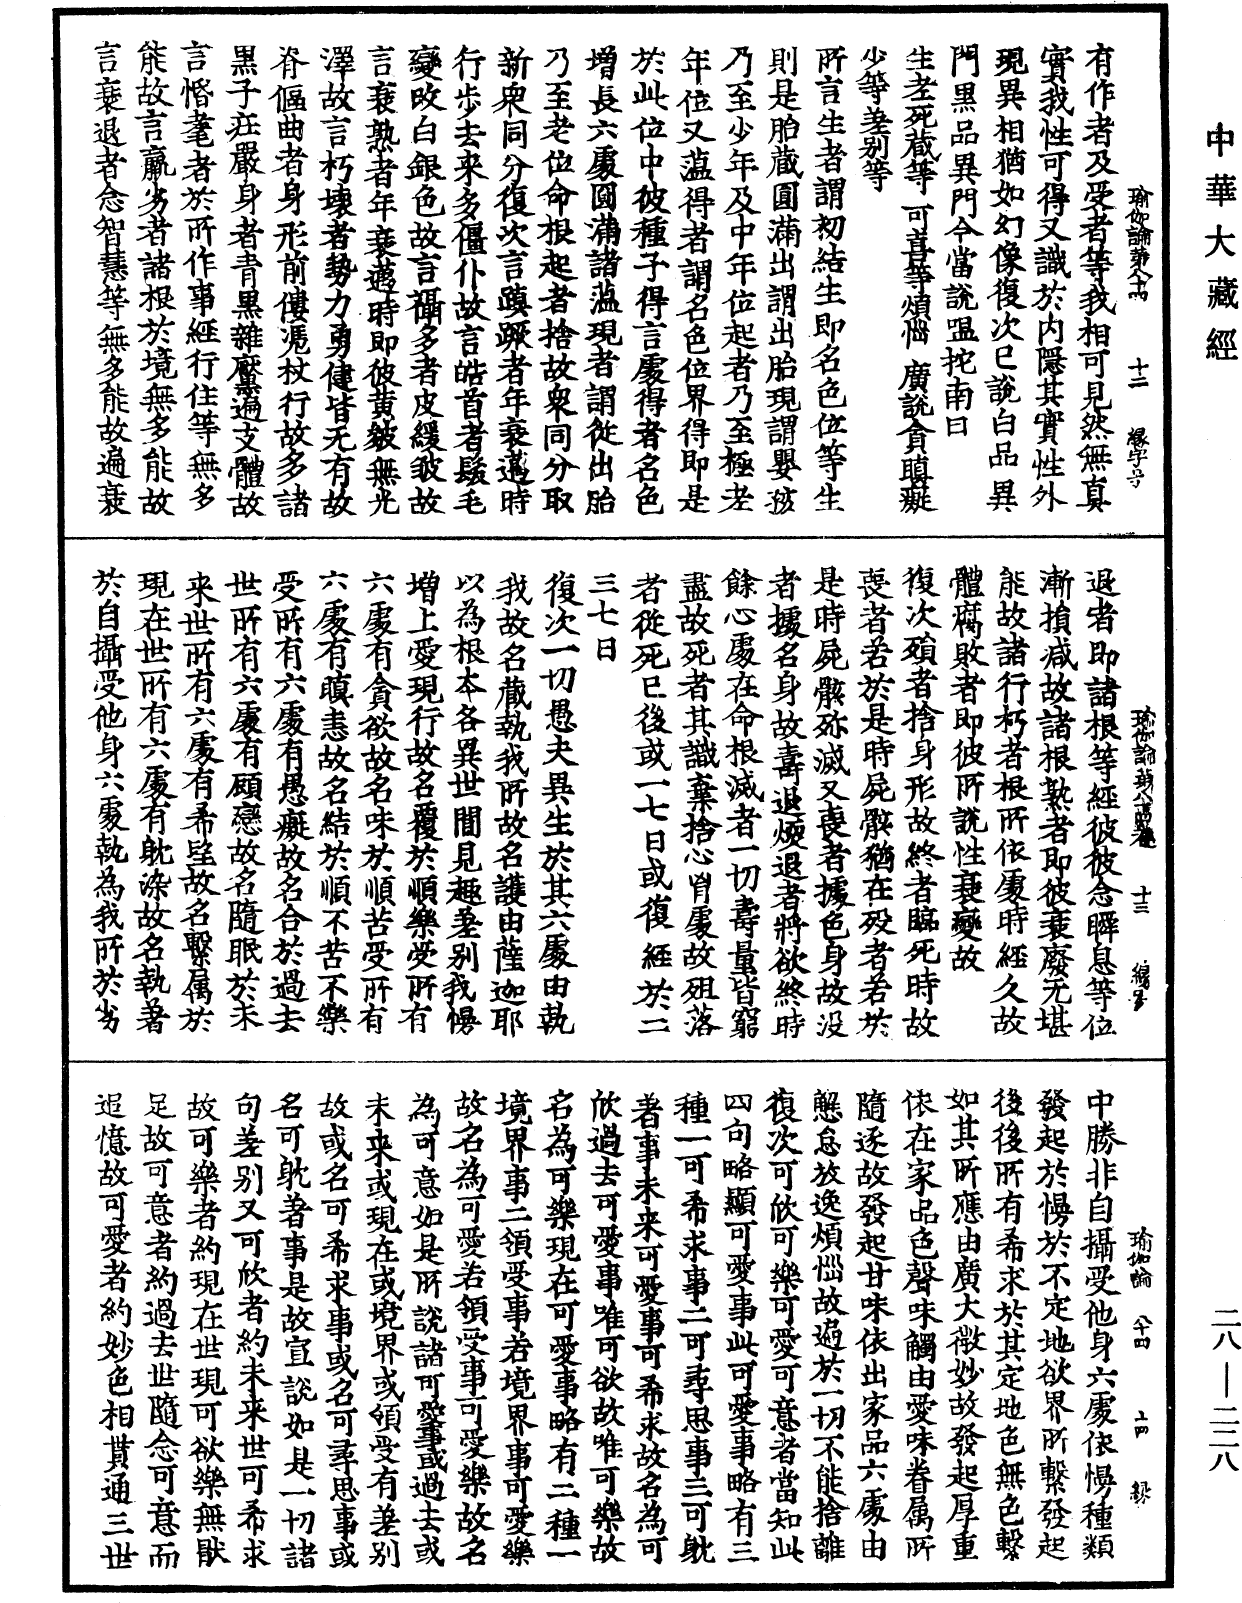 中華大藏經
二八—二二八
瑜伽論第八十四　十二
有作者及受者等我相可見然無真
實我性可得又識於內隱其實性外
現異相猶如幻像復次已說白品異
門黑品異門今當說嗢拕南曰
生老死藏等　可喜等煩惱　廣說貪瞋癡
少等差別等
所言生者謂初結生即名色位等生
則是胎藏圓滿出謂出胎現謂嬰孩
乃至少年及中年位起者乃至極老
年位又薀得者謂名色位界得即是
於此位中彼種子得言處得者名色
增長六處圓滿諸薀現者謂從出胎
乃至老位命根起者捨故衆同分取
新衆同分復次言蹎蹶者年衰邁時
行步去来多僵仆故言皓首者髮毛
變改白銀色故言襵多者皮緩皺故
言衰熟者年衰邁時即彼黄皺無光
澤故言朽壞者勢力勇健皆无有故
脊傴曲者身形前僂憑杖行故多諸
黑子莊嚴身者青黑雜黶遍支體故
言惛耄者於所作事經行住等無多
能故言羸劣者諸根於境無多能故
言衰退者念智慧等無多能故遍衰
十三
退者即諸根等經彼彼念瞬息等位
漸損減故諸根熟者即彼衰廢无堪
能故諸行朽者根所依處時經久故
體腐敗者即彼所說性衰變故
復次殞者捨身形故終者臨死時故
喪者若於是時屍骸猶在歿者若於
是時屍骸殄滅又喪者據色身故没
者據名身故壽退煖退者將欲終時
餘心處在命根滅者一切壽量皆窮
盡故死者其識棄捨心胷處故殂落
者從死已後或一七日或復經於二
三七日
復次一切愚夫異生於其六處由執
我故名藏執我所故名護由薩迦耶
以為根本各異世間見趣差別我慢
增上愛現行故名覆於順樂受所有
六處有貪欲故名味於順苦受所有
六處有瞋恚故名結於順不苦不樂
受所有六處有愚癡故名合於過去
世所有六處有顧戀故名隨眠於未
来世所有六處有希望故名繫属於
現在世所有六處有躭染故名執著
於自攝受他身六處執為我所於劣
瑜伽論　八十四　十四
中勝非自攝受他身六處依慢種類
發起於慢於不定地欲界所繫發起
後後所有希求於其定地色無色繫
如其所應由廣大微妙故發起厚重
依在家品色聲味觸由愛味眷属所
隨逐故發起甘味依出家品六處由
懈怠放逸煩惱故遍於一切不能捨離
復次可欣可樂可愛可意者當知此
四句略顯可愛事此可愛事略有三
種一可希求事二可尋思事三可躭
著事未来可愛事可希求故名為可
欣過去可愛事唯可欲故唯可樂故
名為可樂現在可愛事略有二種一
境界事二領受事若境界事可愛樂
故名為可愛若領受事可愛樂故名
為可意如是所說諸可愛事或過去或
未来或現在或境界或領受有差別
故或名可希求事或名可尋思事或
名可躭著事是故宣說如是一切諸
句差別又可欣者約未来世可希求
故可樂者約現在世現可欲樂無猒
足故可意者約過去世隨念可意而
追憶故可愛者約妙色相貫通三世